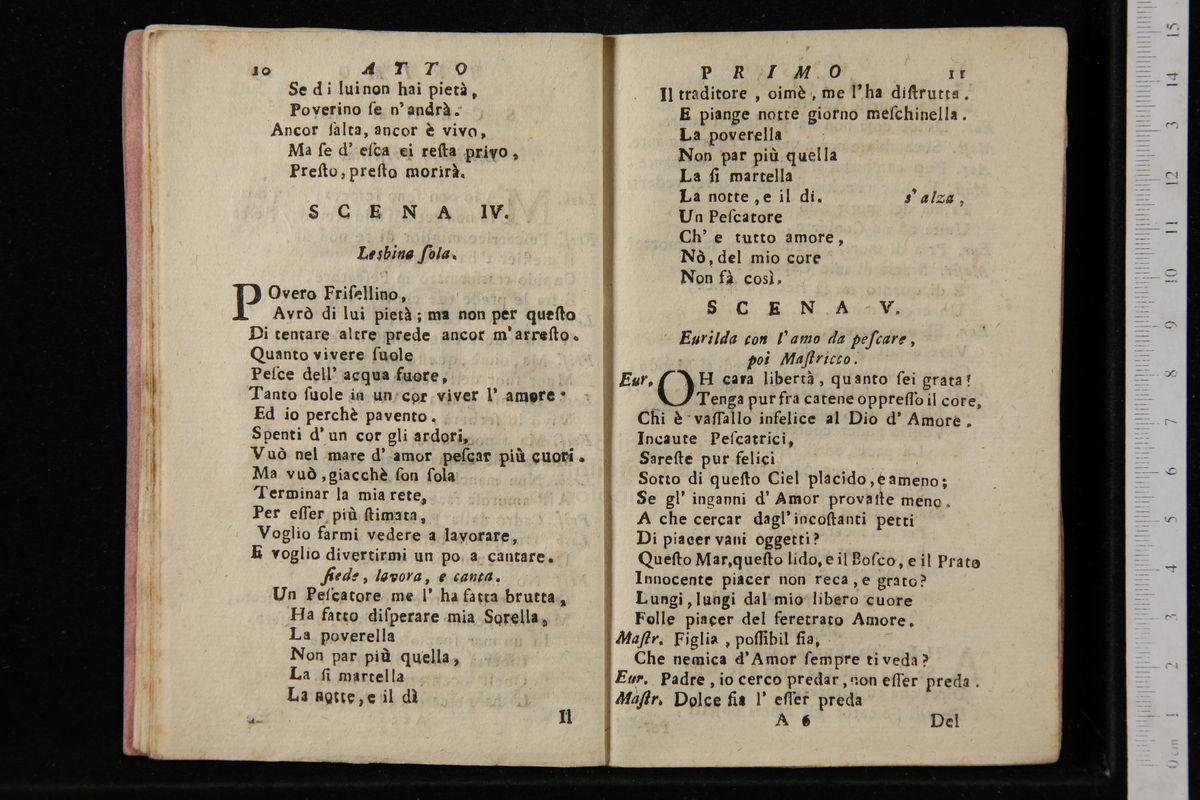 10 ATTO
Se di lui non hai pietà,
Poverino ſe n'andrà.
Ancor ſalta, ancor è vivo,
Ma ſe d' eſca ei reſta privo,
Preſto, preſto morirà.
SCENA IV.
Lesbina ſola.
POvero Friſellino,
Avrò di lui pietà; ma non per queſto
Di tentare altre prede ancor m'arreſto.
Quanto vivere ſuole
Peſce dell' acqua fuore,
Tanto ſuole in un cor viver l' amore.
Ed io perchè pavento.
Spenti d' un cor gli ardori,
Vuò nel mare d' amor peſcar più cuori.
Ma vuò, giacchè ſon ſola
Terminar la mia rete,
Per eſſer più ſtimata,
Voglio farmi vedere a lavorare,
E voglio divertirmi un po a cantare.
ſiede, lavora, e canta.
Un Peſcatore me l' ha fatta brutta,
Ha fatto diſperare mia Sorella,
La poverella
Non par più quella,
La ſi martella
La notte, e il dì
Il
PRIMO 11
Il traditore, oimè, me l'ha diſtrutta.
E piange notte giorno meſchinella.
La poverella
Non par più quella
La ſi martella
La notte, e il di. s'alza,
Un Peſcatore
Ch' e tutto amore,
Nò, del mio core
Non fà così.
SCENA V.
Eurilda con l'amo da peſcare,
poi Maſtricco.
Eur. OH cara libertà, quanto ſei grata!
Tenga pur fra catene oppreſſo il core,
Chi è vaſſallo infelice al Dio d' Amore.
Incaute Peſcatrici,
Sareſte pur felici
Sotto di queſto Ciel placido, e ameno;
Se gl' inganni d' Amor provaſte meno.
A che cercar dagl' incoſtanti petti
Di piacer vani oggetti?
Queſto Mar, queſto lido, e il Boſco, e il Prato
Innocente piacer non reca, e grato?
Lungi, lungi dal mio libero cuore
Folle piacer del feretrato Amore.
Maſtr. Figlia, poſſibil ſia,
Che nemica d'Amor ſempre ti veda?
Eur. Padre, io cerco predar, non eſſer preda.
Maſtr. Dolce ſia l' eſſer preda
A 6 Del
0 cm 1 2 3 4 5 6 7 8 9 10 11 12 13 14 15